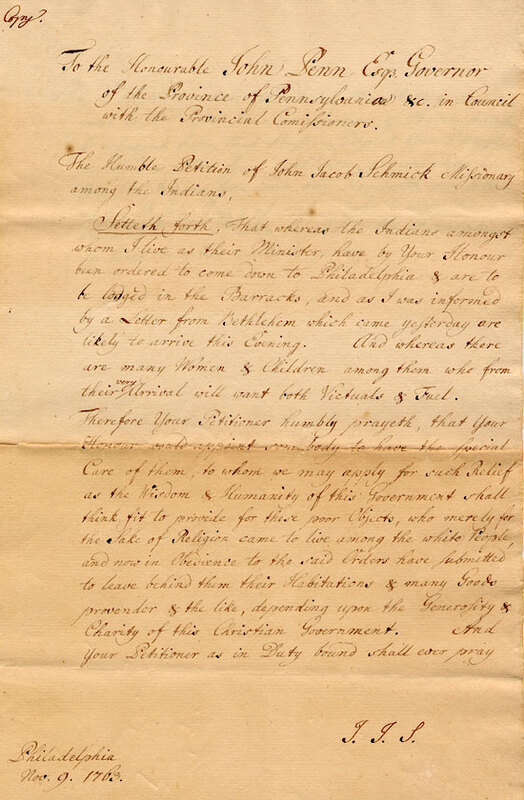 Copy.
To the Honourable John Penn Esqr. Governor
of the Province of Pennsylvania &c. in Council
with the Provincial Comissioners.
The Humble Petition of John Jacob Schmick Missionary
among the Indians,
Setteth forth, That whereas the Indians amongst
whom I live as their Minister, have by Your Honour
been ordered to come down to Philadelphia & are to
be lodged in the Barracks, and as I was informed
by a Letter from Bethlehem which came yesterday are
likely to arrive this Evening. And whereas there
are many Women & Children among them who from
their very Arrival will want both Victuals & Fuel.
Therefore Your Petitioner humbly prayeth, that Your
Honour would appoint some body to have the special
Care of them, to whom we may apply for such Relief
as the Wisdom & Humanity of this Government shall
think fit to provide for these poor Objects, who merely for
the Sake of Religion came to live among the white People,
and now in Obedience to the said Orders have submitted
to leave behind them their Habitations & many Goods
provender & the like, depending upon the Generosity &
Charity of this Christian Government. And
Your Petitioner as in Duty bound shall ever pray
J. J. S.
Philadelphia
Nov. 9. 1763.